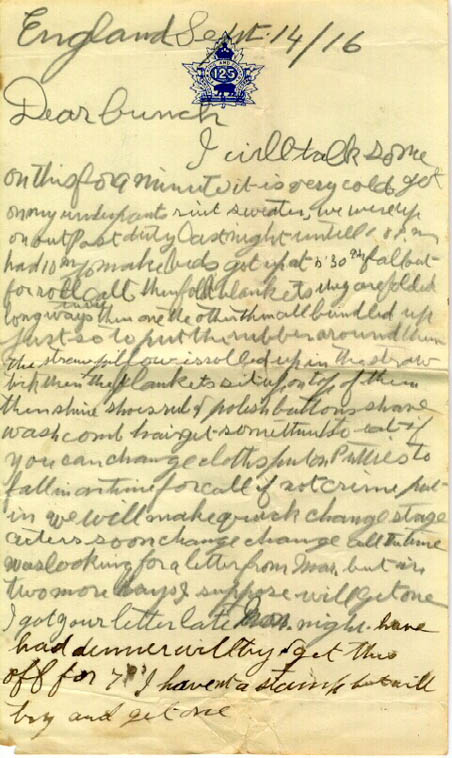 England Sept. 14/16
125
Dear bunch
I will talk some
on this for a minute it is very cold got
on my underpants & sweater, we were up
on out Post duty last night until
had to make beds got up at 5'30 fall out
for roll call then fold blankets they are folded
long ways then one the other them all bundled up
just so to put the rubber around them
the straw pillow is rolled up in the straw
tick then the blankets sit upon top of them
then shine shoes & polish buttons shave
wash comb hair get something to eat if
you can change cloths put on Putties to
fall in on time for call if not crime put
in we will make quick change stage
acters soon change change all the time
was looking for a letter from Mon. but in
two more days I suppose will get one
I got your letter late Mon. night. have
had dinner will try & get this
off for 7 I havent a stamp but will
try and get one